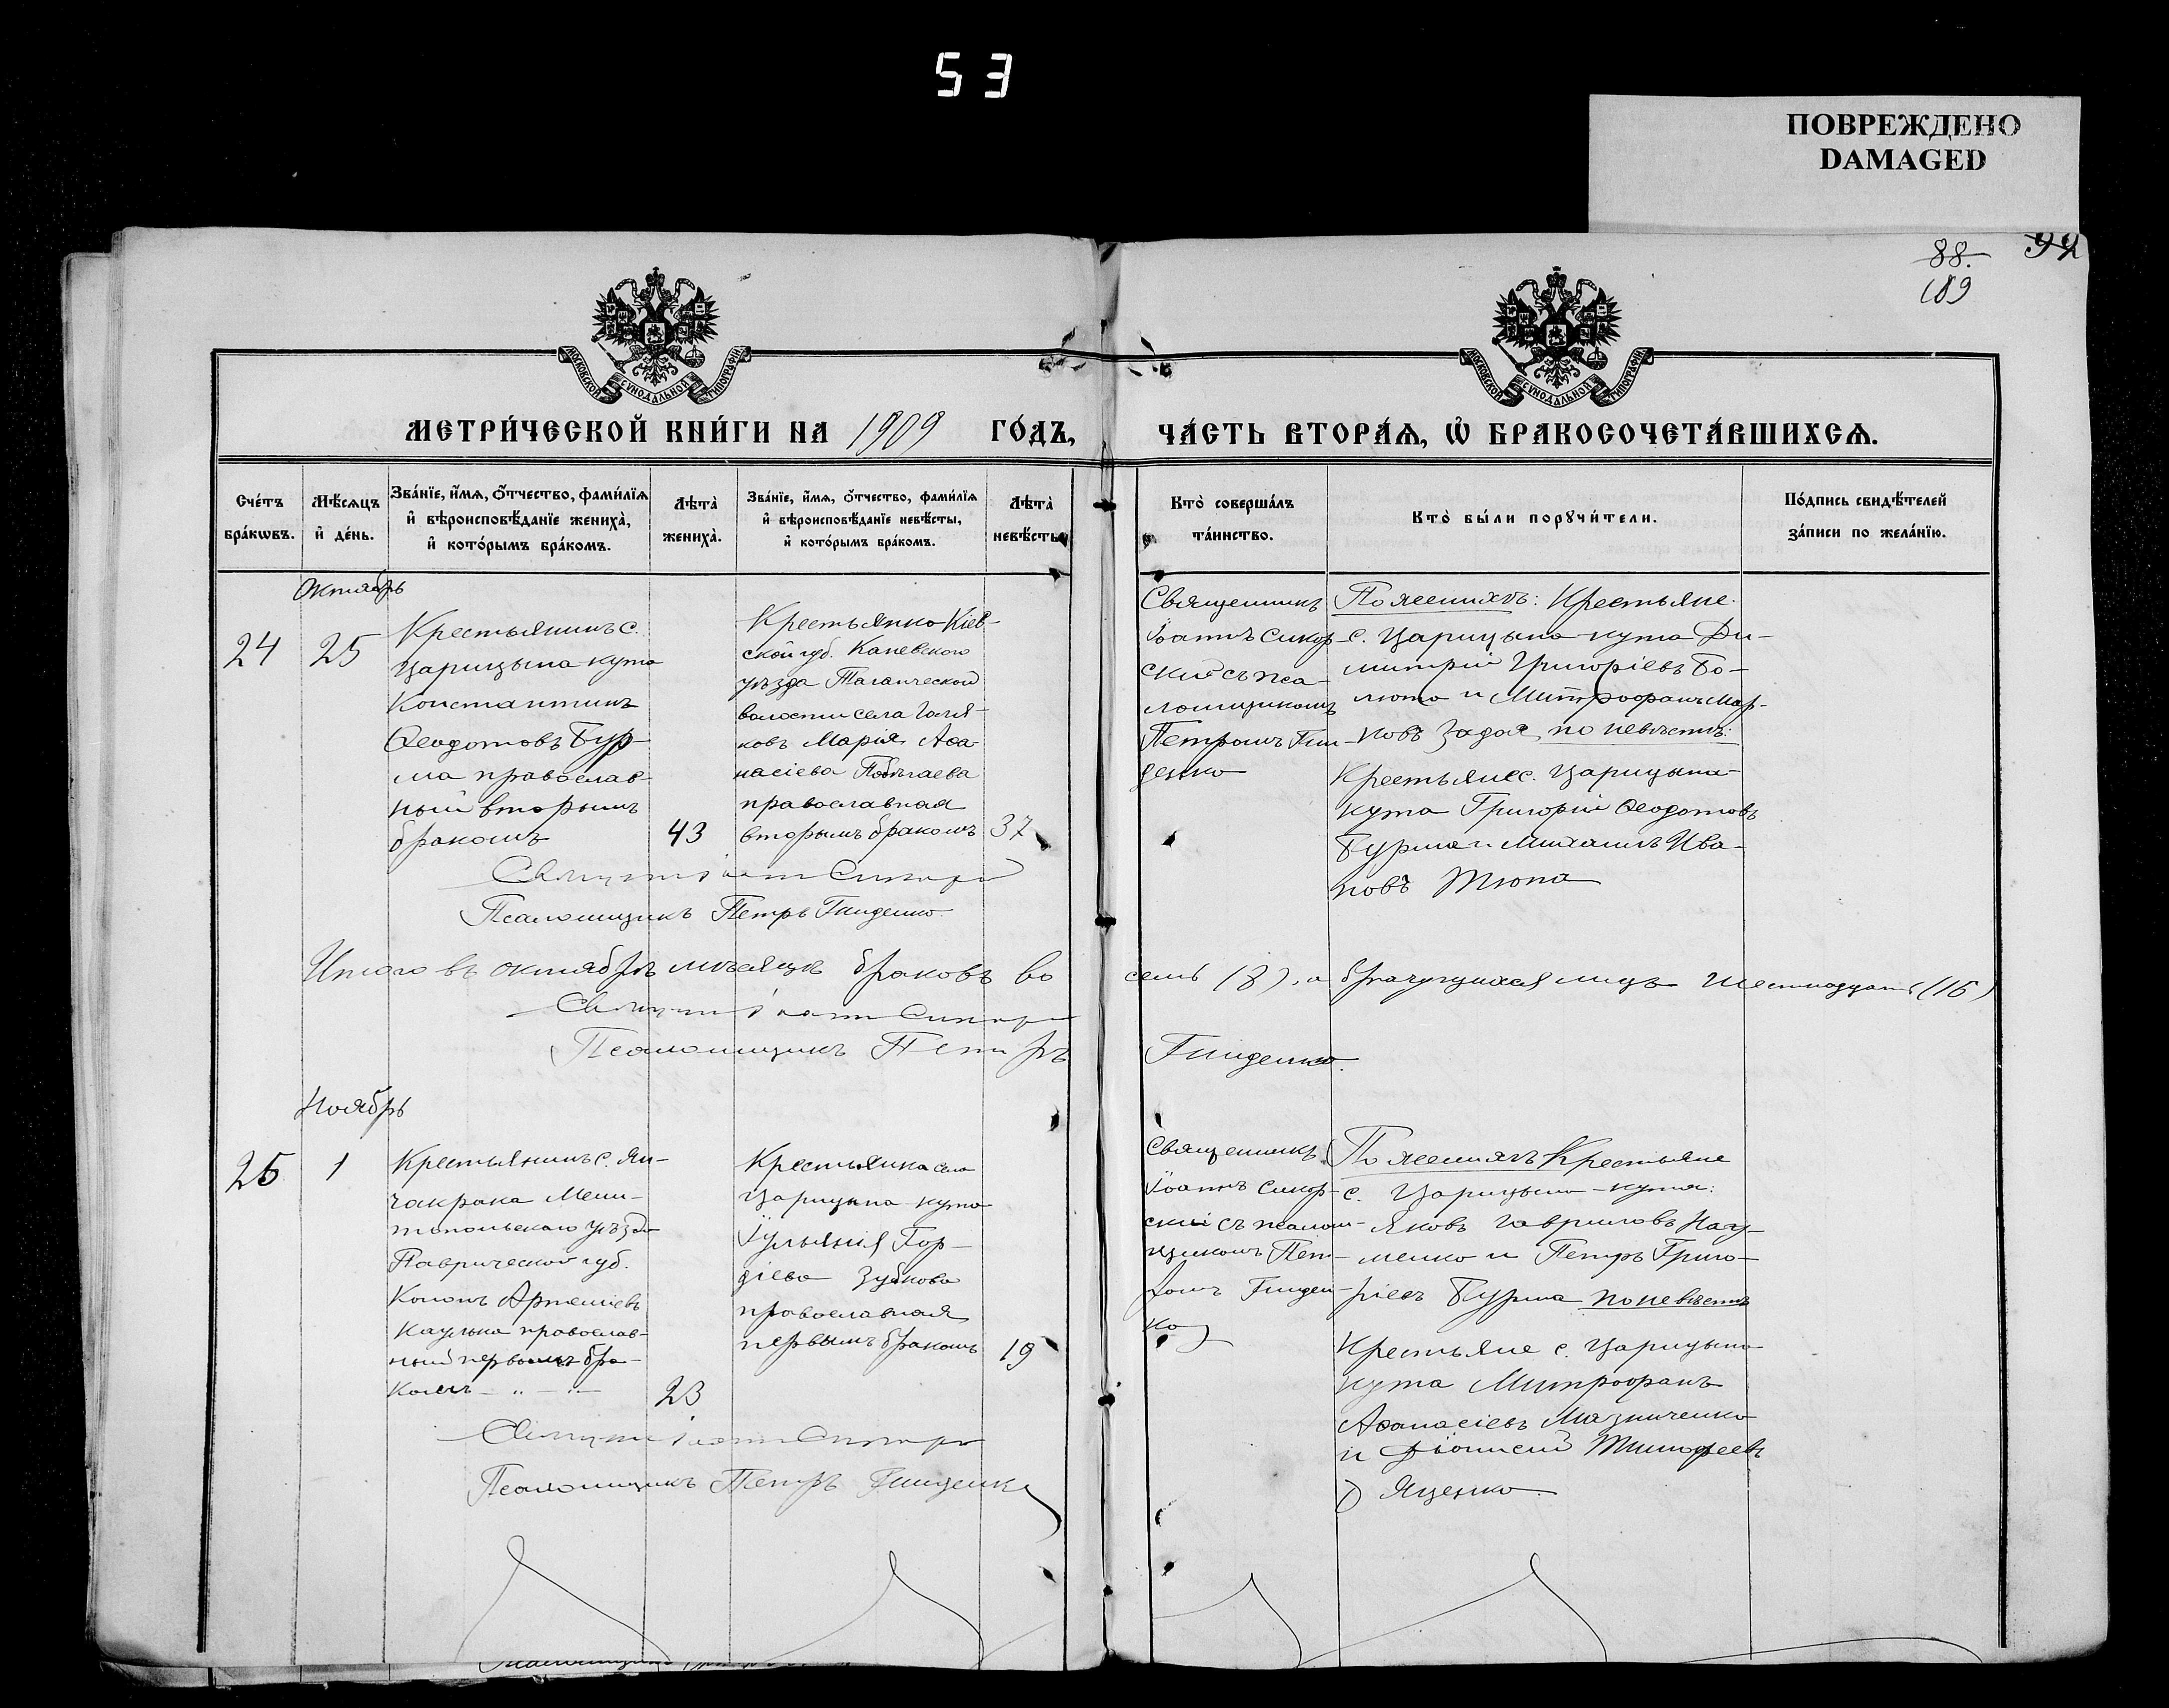 53
ПОВРЕЖДЕНО
DAMAGED
92
88.
189
МОСКОВСКОЙ СѴНОДАЛЬНОЙ ТИПОГРАФІИ
МОСКОВСКОЙ СѴНОДАЛЬНОЙ ТИПОГРАФІИ
МЕТРИ́ЧЕСКОЙ КНИ́ГИ НА 1909 ГО́ДЪ,
ЧА́СТЬ ВТОРА́Ѧ, Ѽ БРАКОСОЧЕТА́ВШИХСѦ.
Сче́тъ бра́кѡвъ.
Мѣ́сѧцъ и҆ де́нь.
Зва́нїе, и҆́мѧ, ѻ҆́тчество, фами́лїѧ и҆ вѣроисповѣ́данїе жениха̀, и҆ кото́рымъ бра́комъ.
Лѣта̀ жениха̀.
Зва́нїе, и҆́мѧ, ѻ҆́тчество, фами́лїѧ и҆ вѣроисповѣ́данїе невѣ́сты, и҆ кото́рымъ бра́комъ.
Лѣта̀ невѣ́сты.
Кто̀ соверша́лъ та́инство.
Кто̀ бы́ли порꙋчи́тели.
По́дпись свидѣ́телей за́писи по жела́нїю.
Октябрь
24
25
Крестьянинъ с.
Царицына кута
Константинъ
Ѳеодотовъ Бур-
ма православ-
ный вторымъ
бракомъ
43
Крестьянка Кіев-
ской губ. Каневского
уѣзда Таганческой
волости села Голя-
ковъ Марія Аѳа-
насіева
православная
вторымъ бракомъ
37
Священникъ
Іоаннъ Сикор-
скій съ пса-
ломщикомъ
Петромъ Гни-
денко
По женихѣ: Крестьяне
с. Царицына-кута Ди-
митрій Григоріевъ Бо-
люто и Митрофанъ Мар-
ковъ Задоя, по невѣстѣ:
Крестьяне с. Царицына-
кута Григорій Ѳеодотовъ
Бурма и Михаилъ Ива-
новъ Тюпа
Священникъ Іоаннъ Сикорскій
Псаломщикъ Петръ Гниденко.
Итого въ октябрѣ мѣсяцѣ браковъ во
семь (8), а брачущихся лицъ шестнадцать (16)
Священникъ Іоаннъ Сикорскій
Псаломщикъ Петръ
Гниденко.
Ноябрь
25
1
Крестьянинъ с. Ян-
чакрака Мели-
топольскаго уѣзда
Таврической губ.
Кононъ Артеміевъ
православ-
ный первымъ бра-
комъ - „ - „ -
23
Крестьянка села
Царицына-кута
Іуліанія Гор-
діева Зубкова
православная
первымъ бракомъ
19
Священникъ
Іоаннъ Сикор-
скій съ псалом-
щикомъ Пет-
ромъ Гниден-
ко
По женихѣ Крестьяне
с. Царицына-кута:
Яковъ Гавриловъ Нау-
менко и Петръ Григо-
ріевъ Бурма по невѣстѣ
Крестьяне с. Царицына
кута Митрофанъ
Аѳанасіевъ Мазниченко
и Діонисій Тимофеевъ
Яценко.
Священникъ Іоаннъ Сикорскій
Псаломщикъ Петръ Гниденко